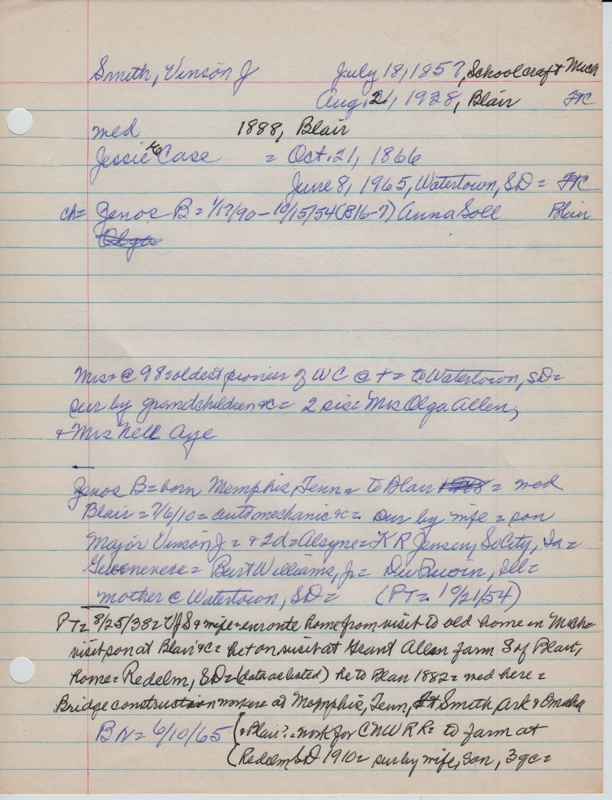 Smith, Vinson J July 18, 1857, Schoolcraft Mich
Aug, 21, 1938, Blair
med 1888, Blair
Jessie Case = Oct. 21, 1866
June 8, 1965, Watertown, SD =
ch= Zenos B = 1/17/90 - 10/15/54 (B16-7) Anna Soll Blair
Olga
Mrs = @ 98 = oldest pioneer of WC @ + = to Watertown, SD =
sur by grandchildren &c = 2 sis = Mrs Olga Allen,
+ Mrs Nell Aye
Zenos B = born Memphis, Tenn = to Blair = med
Blair = 7/6/10 = auto mechanic &c = sur by wife = son
Major Vinson J = + 2d = Alsyne = K R Jensen, So City, Ia =
= Burt Williams, Jr = DuQuoin, Ill =
mother @ Watertown, SD = (PT = 10/21/54)
PT = 8/25/38 = VJS + wife = enroute home from visit to old home in Mich =
visit son at Blair &c = he + on visit at Grant Allen farm S of Blair,
home = Redelm, SD = (data as listed) he to Blair 1882 = med here =
Bridge construction worker at Memphis, Tenn, Ft Smith, Ark + Omaha
BN = 6/10/65 (+ Blair? = work for CNWRR = to farm at
(Redelm SD 1910 = sur by wife, son, 3 gc =